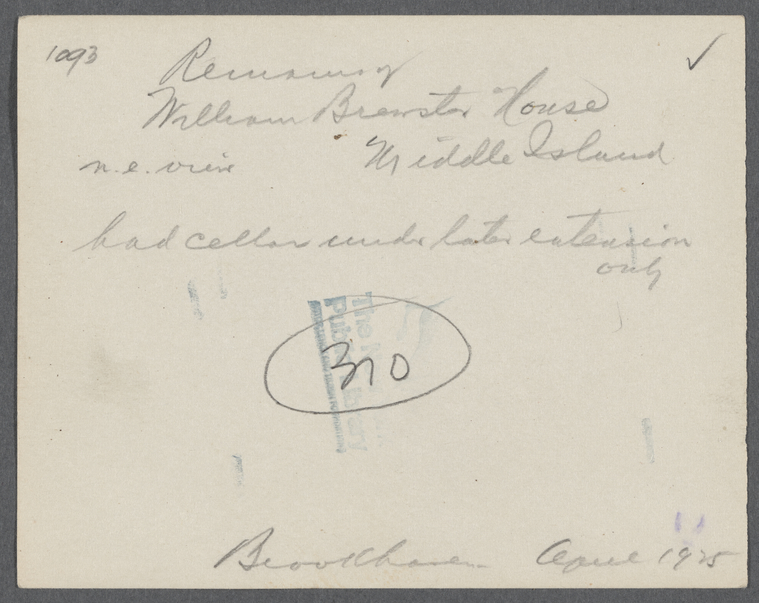 1093 ✓
Remains of
William Brewster House
n.e. view Middle Island
had cellar under later extension
only
The
Public Library
310
Brookhaven April 1925